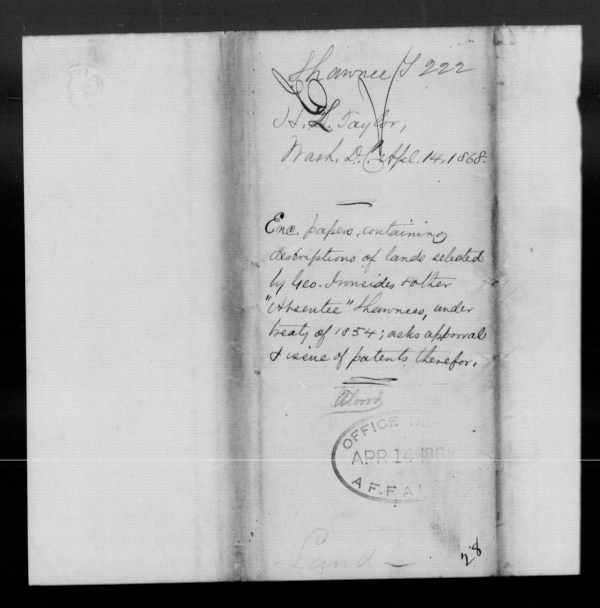 Shawnee / T 222
H. L. Taylor,
Wash. D.C. Apl. 14, 1868.
Enc. papers, containing
descriptions of lands selected
by Geo. Ironsides & other
"Absentee" Shawnees, under
treaty of 1854; asks approval
& issue of patents therefor.
OFFICE
APR 14 186
AFFAI
Land
28